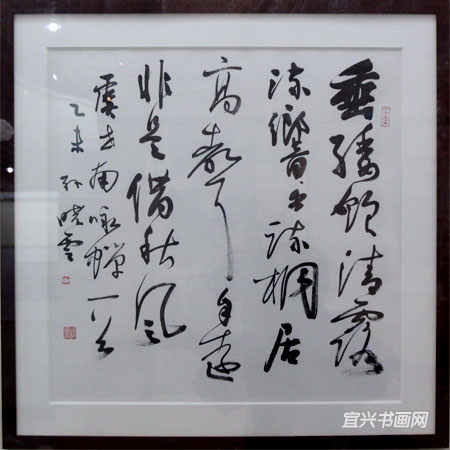 垂緌飲清露
流響出疏桐居
高聲自遠
非是借秋風
虞世南咏蟬一首
乙未孫曉雲
宜兴书画网